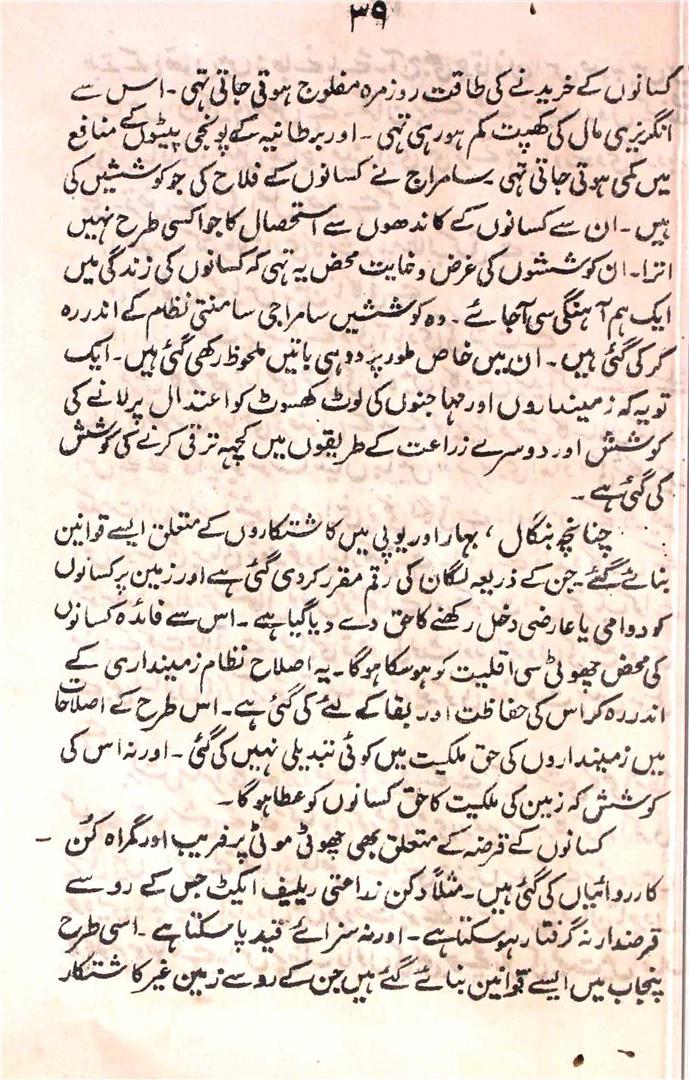 ۳۹
کسانوں کے خریدنے کی طاقت روزمرہ مفلوج ہوتی جاتی تہی ۔ اس سے
انگریزی مال کی کھپت کم ہو رہی تہی ۔ اور برطانیہ کے پونجی پیٹوں کے منافع
میں کمی ہوتی جاتی تہی ۔ سامراج نے کسانوں کے فلاح کی جو کوششیں کی
ہیں ۔ ان سے کسانوں کے کاندھوں سے استحصال کا جوا کسی طرح نہیں
اترا ۔ ان کوششوں کی غرض و غایت محض یہ تہی کہ کسانوں کی زندگی میں
ایک ہم آہنگی سی آجائے ۔ وہ کوششیں سامراجی سامنتی نظام کے اندر رہ
کر کی گئی ہیں ۔ ان میں خاص طور پر دو ہی باتیں ملحوظ رکھی گئی ہیں ۔ ایک
تو یہ کہ زمینداروں اور مہاجنوں کی لوٹ کھسوٹ کو اعتدال پر لانے کی
کوشش اور دوسرے زراعت کے طریقوں میں کچہہ ترقی کرنے کی کوشش
کی گئی ہے ۔
چنانچہ بنگال ، بہار اور یوپی میں کاشتکاروں کے متعلق ایسے قوانین
بنائے گئے ۔ جن کے ذریعہ لگان کی رقم مقرر کردی گئی ہے اور زمین پر کسانوں
کو دوامی یا عارضی دخل رکھنے کا حق دے دیا گیا ہے ۔ اس سے فائدہ کسانوں
کی محض چھوٹی سی اقلیت کو ہو سکا ہوگا ۔ یہ اصلاح نظام زمینداری کے
اندر رہ کر اس کی حفاظت اور بقا کے لئے کی گئی ہے ۔ اس طرح کے اصلاحات
میں زمینداروں کی حق ملکیت میں کوئی تبدیلی نہیں کی گئی ۔ اور نہ اس کی
کوشش کہ زمین کی ملکیت کا حق کسانوں کو عطا ہوگا ۔
کسانوں کے قرضہ کے متعلق بھی چھوٹی موٹی پر فریب اور گمراہ کن
کارروائیاں کی گئی ہیں ۔ مثلاً دکن زراعتی ریلیف ایکٹ جس کے رو سے
قرضدار نہ گرفتار ہو سکتا ہے ۔ اور نہ سزائے قید پا سکتا ہے ۔ اسی طرح
پنجاب میں ایسے قوانین بنائے گئے ہیں جن کے رو سے زمین غیر کاشتکار